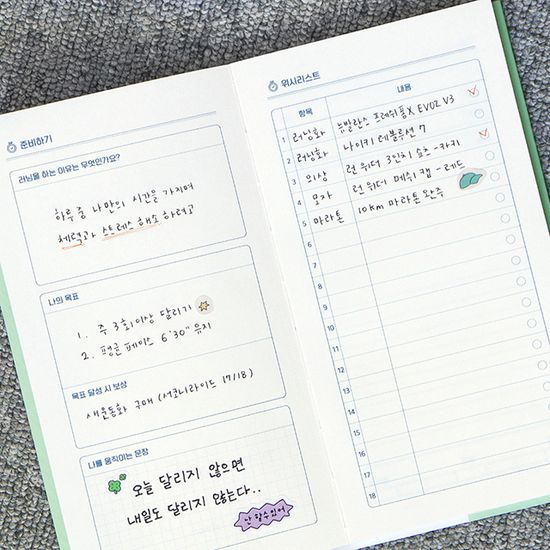 준비하기
러닝을 하는 이유는 무엇인가요?
하루 중 나만의 시간을 가지며
체력과 스트레스 해소 하려고
나의 목표
1. 주 3회이상 달리기
2. 평균 페이스 6'30" 유지
목표 달성 시 보상
새운동화 구매 (써코니라이드 17/18)
나를 움직이는 문장
오늘 달리지 않으면
내일도 달리지 않는다..
안 할 수 있어
위시리스트
항목 내용
1 러닝화 뉴발란스 프레쉬폼X EVOZ V3
2 러닝화 나이키 레볼루션 7
3 의상 런 위더 3인치 쇼츠-카키
4 모자 런 위더 메쉬 캡 - 레드
5 마라톤 10km 마라톤 완주
6
7
8
9
10
11
12
13
14
15
16
17
18